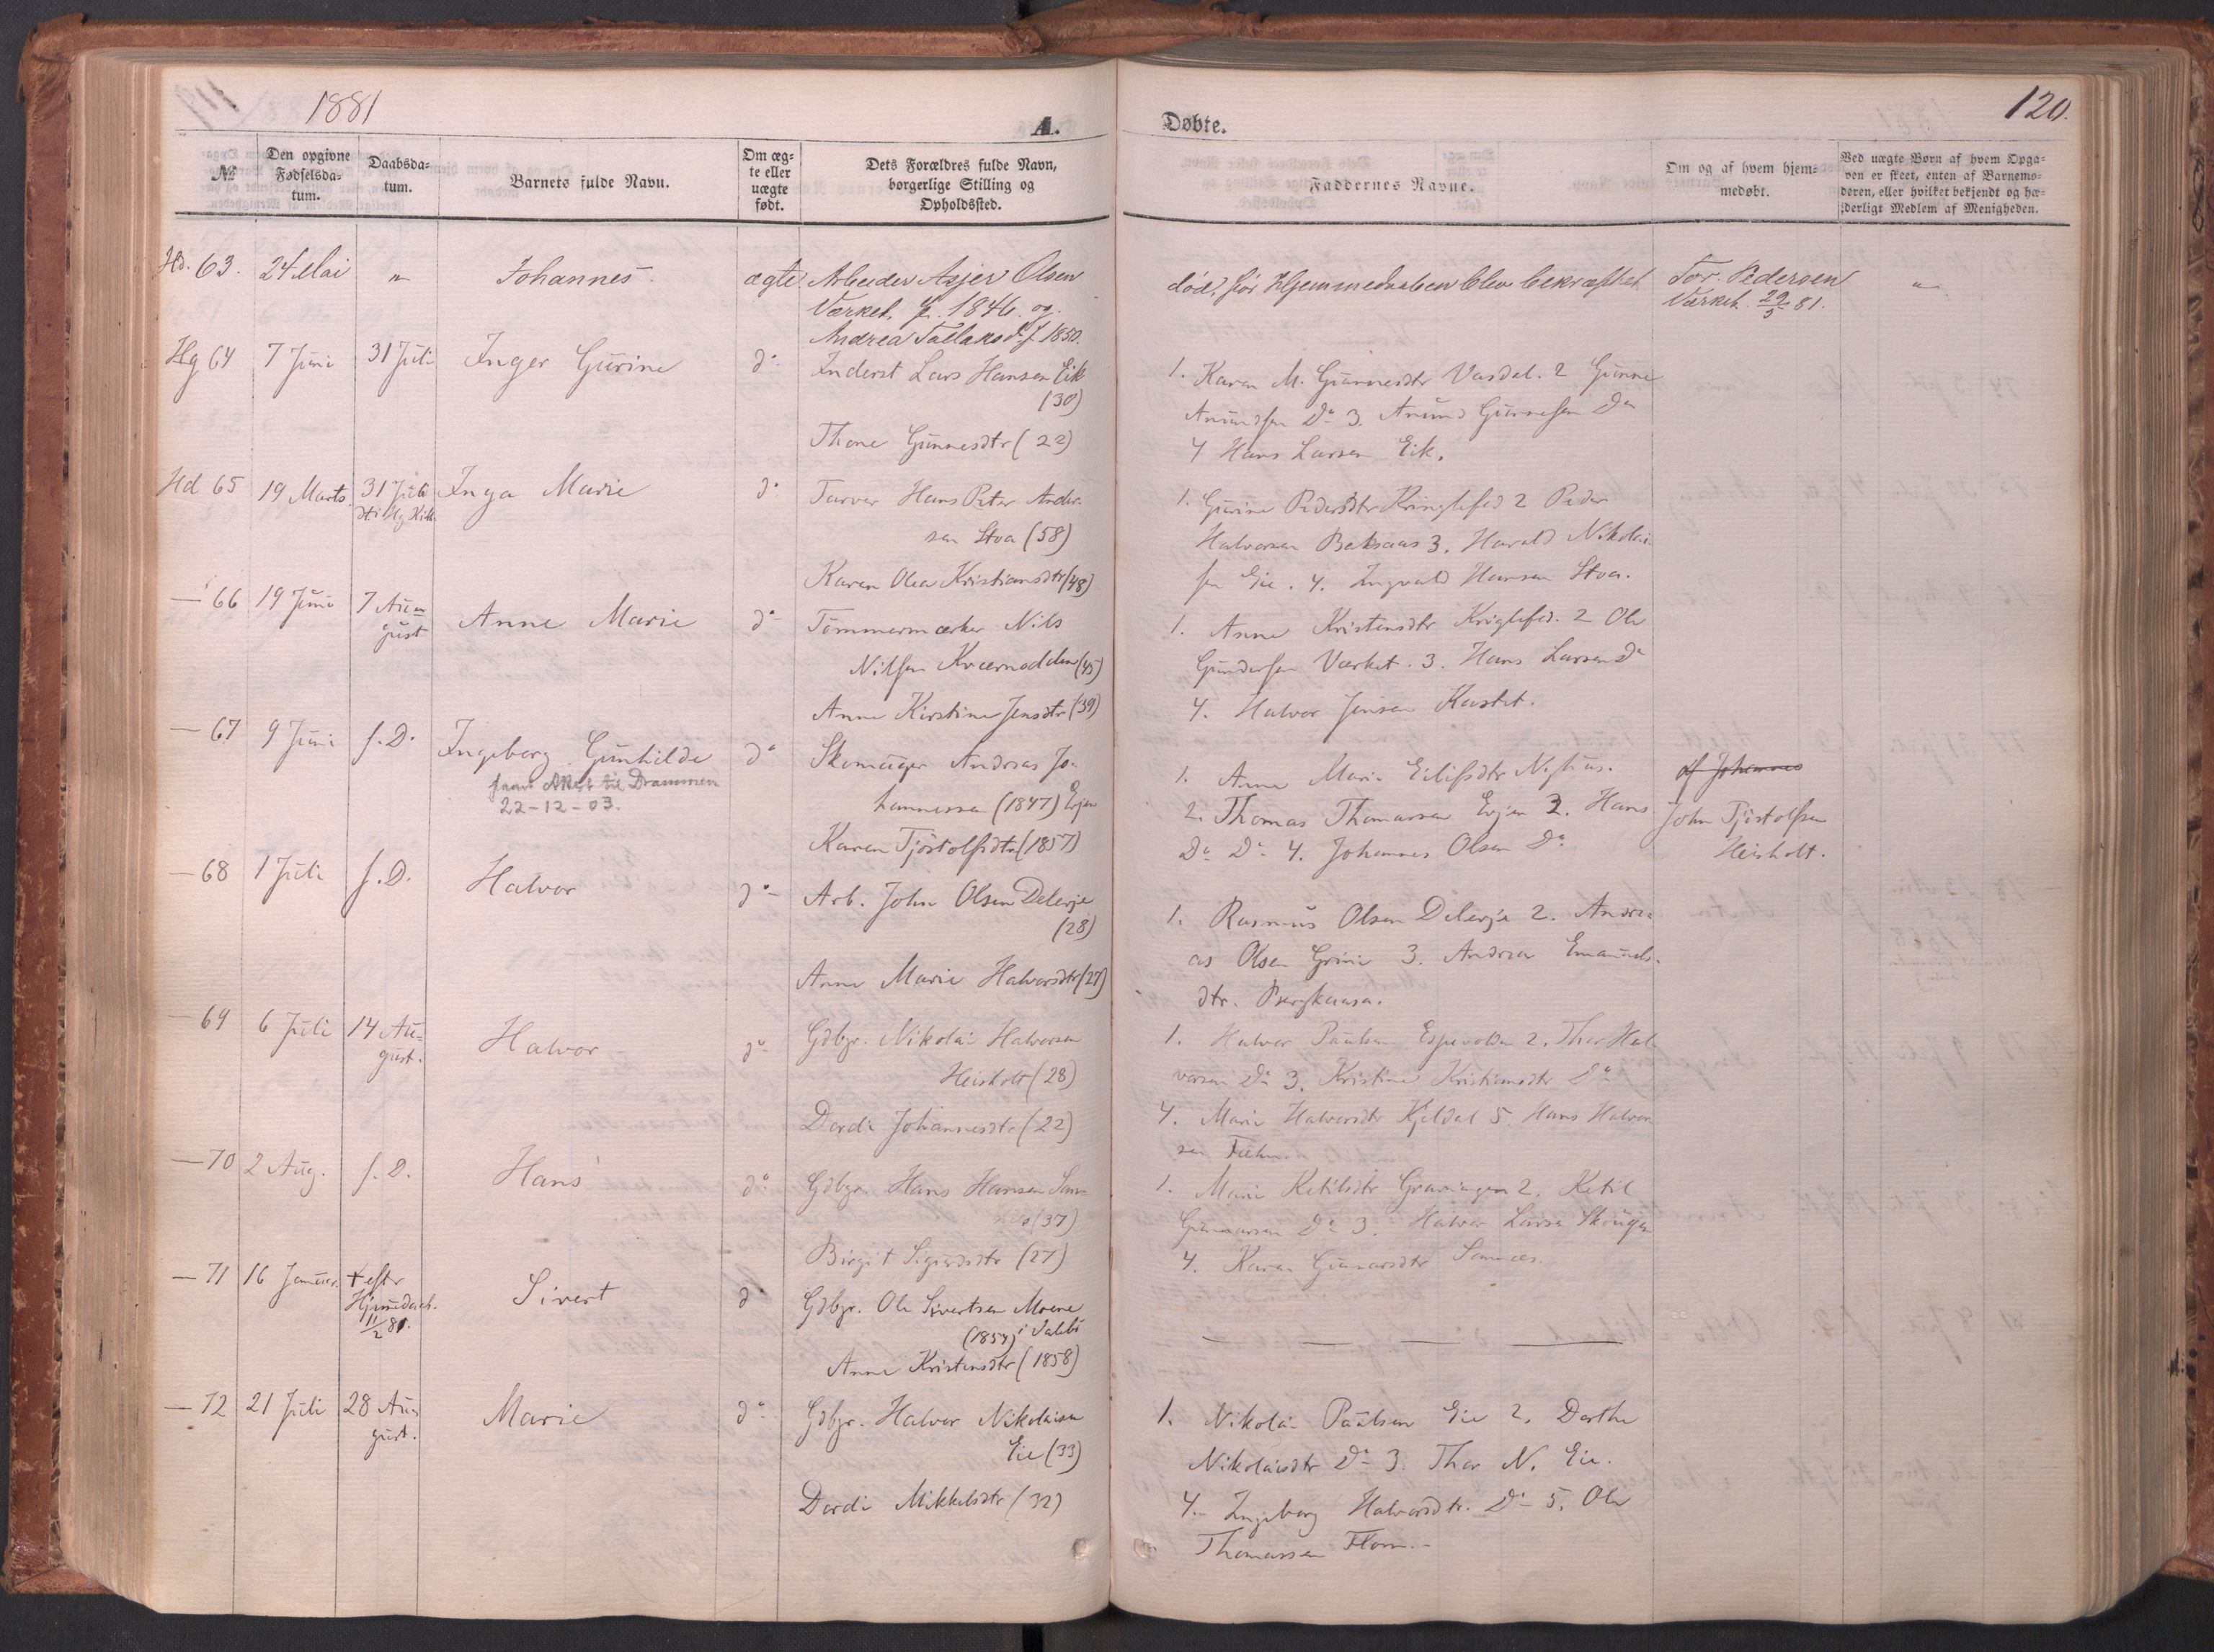 1881
A.
Døbte.
120.
№
Den opgivne Fødselsda-tum.
Daabsda-tum.
Barnets fulde Navn.
Om æg-te eller uægte født.
Dets Forældres fulde Navn, borgerlige Stilling og Opholdssted.
Faddernes Navne.
Om og af hvem hjem-medøbt.
Ved uægte Børn af hvem Opga-ven er skeet, enten af Barnemo-deren, eller hvilket bekjendt og hæ-derligt Medlem af Menigheden.
Hd. 63. 24 Mai " Johannes ægte Arbeider Asjer Olsen
Værket f. 1846. og
Andrea Tallaksd. f 1850.
død, før Hjemmedaaben blev bekræftet
Tor. Pedersen
Værket 29/5 81.
"
Hg 64 7 Juni 31 Juli Inger Gurine do Inderst Lars Hansen Eik
(30)
Thone Gunnesdtr (22)
1. Karen M. Gunnesdtr Vasdal. 2 Gunne
Anundsen Do 3. Anund Gunnesen Do
4 Hans Larsen Eik.
Hd 65 19 Marts 31 Juli
Inga Marie do Farver Hans Peter Ander-
sen Stoa (58)
Karen Olea Kristiansdtr (48)
1. Gurine Pedersdtr Kringlefed 2 Peder
Halvorsen Baksaas 3. Harald Nikolai-
sen Eie. 4. Ingvald Hansen Stoa.
— 66 19 Juni 7 Au-
gust
Anne Marie do Tømmermærker Nils
Nilsen Kværnodden (45)
Anne Kirstine Jensdtr (39)
1. Anne Kristensdtr Kriglefed. 2 Ole
Gundersen Værket. 3. Hans Larsen Do
4. Halvor Jensen Kastet.
— 67 9 Juni s. D. Ingeborg Gunhilde do Skomager Andreas Jo-
hannessen (1847) Evjen
Karen Tjöstolfsdtr (1857)
Attest til Drammen
22-12-03.
1. Anne Marie Eilifsdtr
2. Thomas Thomassen Evjen 3. Hans
Do Do 4. Johannes Olsen Do
af Johannes
John Tjöstolfsen
Heisholt.
— 68 1 Juli s. D. Halvor do Arb. John Olsen Dalerje
(28)
Anne Marie Halvorsdtr (27)
1. Rasmus Olsen Dalerje 2. Andre-
as Olsen Grini 3. Andrea Emanuels-
dtr.
— 69 6 Juli 14 Au-
gust.
Halvor do Gdbgr. Nikolai Halvorsen
Heisholt (28)
Dordi Johannesdtr (22)
1. Halvor Paulsen Espevolden 2. Thor Hal
vorsen Do 3. Kristine Kristiansdtr Do
4. Marie Halvorsdtr Kjeldal 5. Hans Halvor
sen
— 70 2 Aug. s. D. Hans do Gdbgr. Hans Hansen Sam-
(37)
Birgit Sigurdsdtr (27)
1. Marie Ketilsdtr Gravingen 2. Ketil
Gunnarsen Do 3. Halvor Larsen Skougen
4. Karen Gunarsdtr Samnes.
— 71 16 Januar. † eftr
Hjemmedaab.
11/2 81.
Sivert do Gdbgr. Ole Sivertsen Moene
(1854) i Valebö
Anne Kristensdtr (1858)
— 72 21 Juli 28 Au
gust.
Marie do Gdbgr. Halvor Nikolaisen
Eie (33)
Dordi Mikkelsdtr (32)
1. Nikolai Paulsen Eie 2. Dorthe
Nikolaisdtr Do 3. Thor N. Eie.
4. Ingeborg Halvorsdtr. Do 5. Ole
Thomassen Flom.